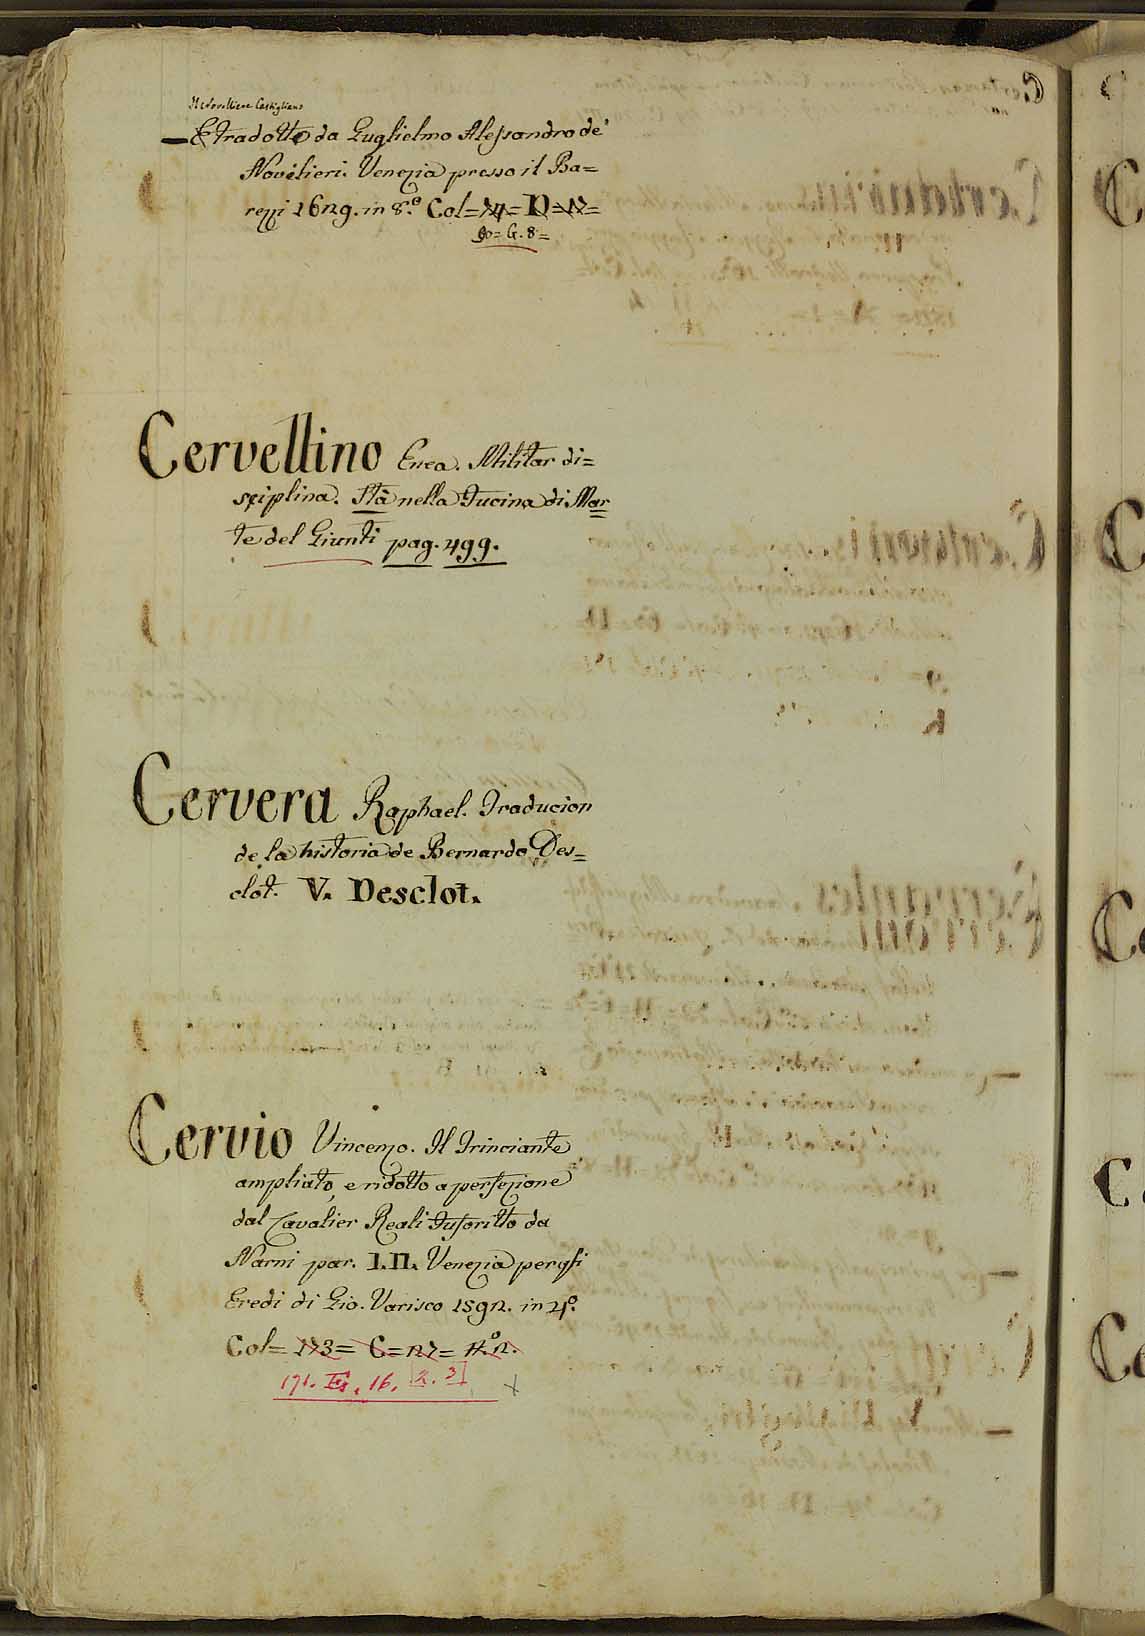 Il Novelliere Castigliano
— E tradotto da Guglielmo Alessandro de'
Novilieri. Venezia presso il Ba=
rezzi 1629. in 8.º Col= = D =
90= G. 8=
Cervellino Enea. Militar di=
sciplina. Stà nella Fucina di Mar
te del Giunti pag. 499.
Cervera Raphael. Traducion
de la historia de Bernardo Des=
clot. V. Desclot.
Cervio Vincenzo. Il Trinciante
ampliato, e ridotto a perfezione
dal Cavalier Reali Fusoritto da
Narni par. I.II. Venezia per gli
Eredi di Gio. Varisco 1592. in 4º.
Col= 173= C= 27=
171. 16. [2. 3]
C